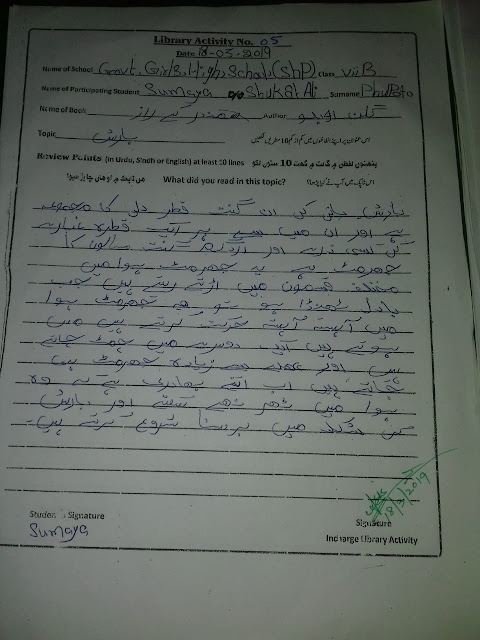 Library Activity No. 05
Date 18-05-2019
Name of School Govt. Girls High School (ShP) Class VII B
Name of Participating Student Sumaya D/O Shukat Ali Surname Phulpoto
Name of Book سمندر کے راز Author
Topic بارش اس عنوان پر اپنے الفاظوں میں کم از کم 10 سطریں لکھیں
Review Points (in Urdu, Sindh or English) at least 10 lines پنهنجون لفظن ۾ گهٽ ۾ گهٽ 10 سٽون لکو
هن ٽاپڪ ۾ اوهان ڇا پڙهيو؟ What did you read in this topic? اس ٹاپک میں آپ نے کیا پڑھا؟
بارش پانی کی ان گنت قطر دلی کا مجموعہ
ہے اور ان میں سے ہر ایک قطرہ غبار کے
کن اسی ذرے اور ان گنت سالموں کا
جھرمٹ ہے یہ جھرمٹ ہوا میں
مختلف قسموں میں اڑتے رہتے ہیں جب
بادل ٹھنڈا ہو تو یہ جھرمٹ ہوا
میں آہستہ آہستہ حرکت کرتے ہیں میں
ہوتے ہیں ایک دوسرے میں جمٹ جاتے
ہیں اور پہلے سے زیادہ جھرمٹ بن
جاتے ہیں اب اتنے بھاری ہے کہ وہ
ہوا میں ٹھر نہیں سکتے اور بارش
کی شکل میں برسنا شروع کرتے ہیں۔
Student's Signature
Sumaya
18/3/2019
Signature
Incharge Library Activity